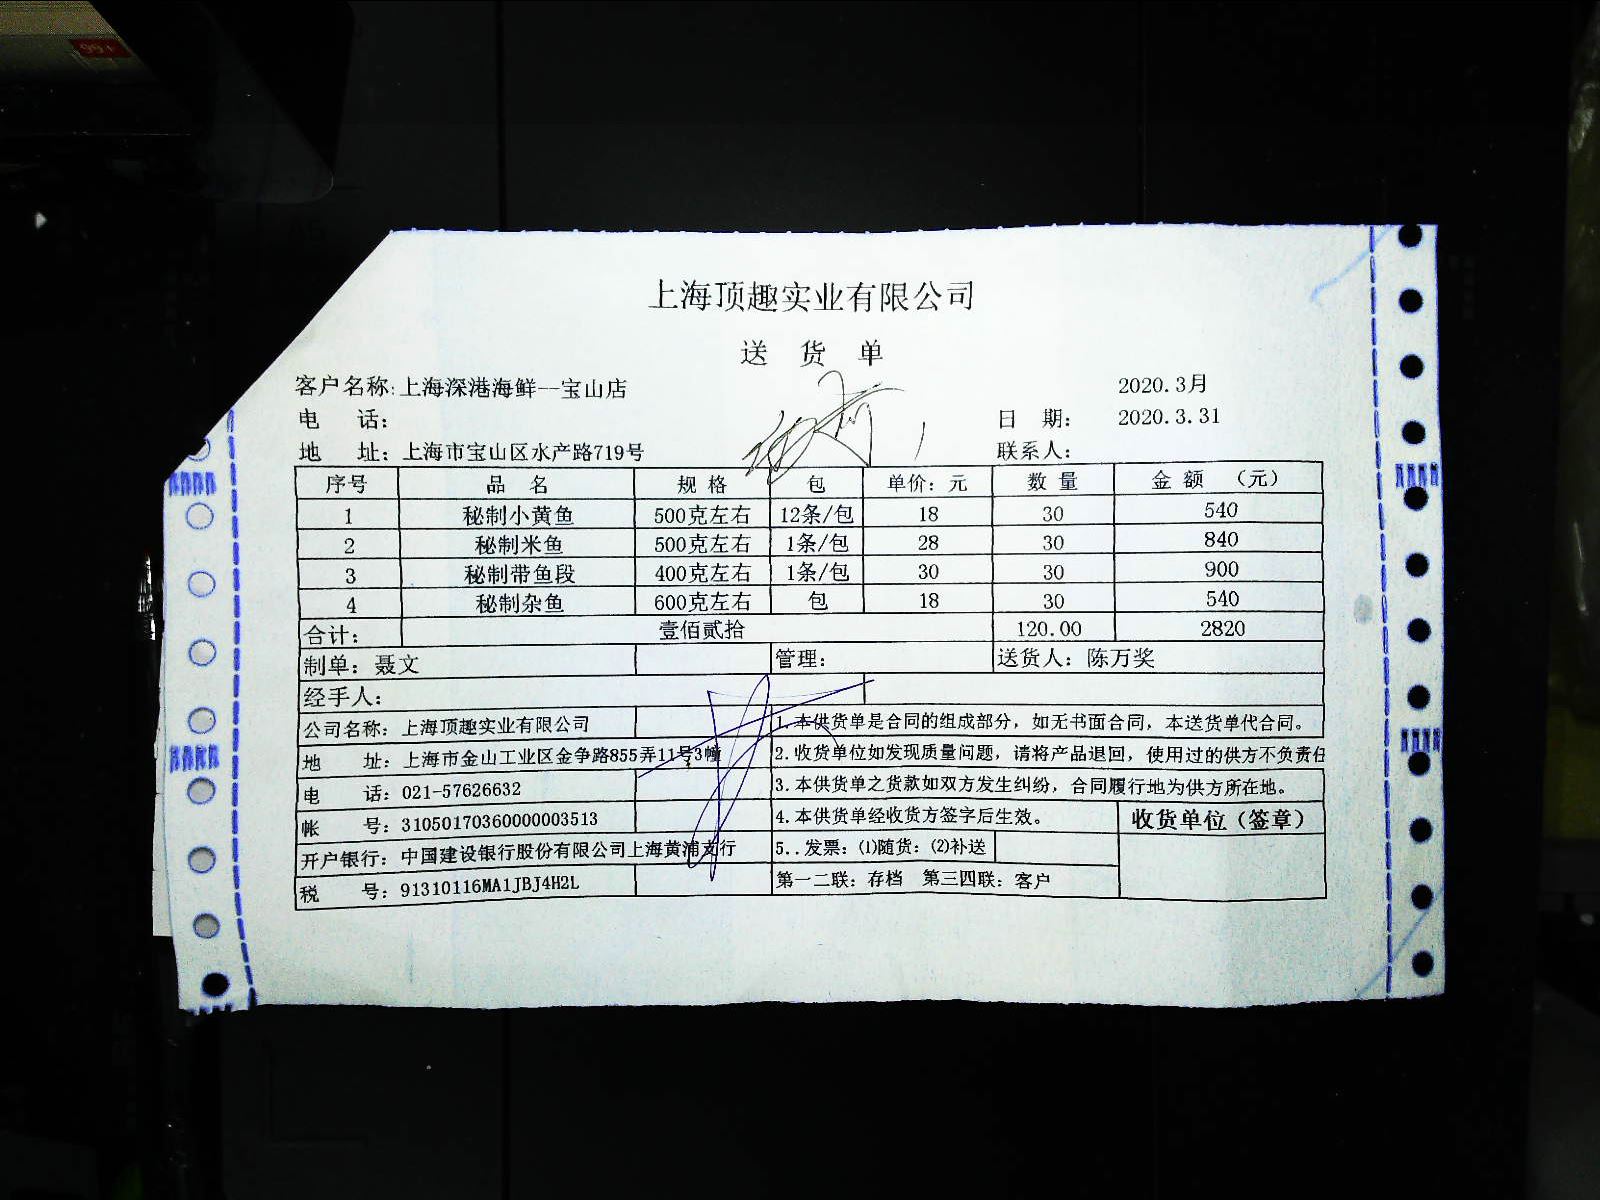 99+
上海顶趣实业有限公司
送 货 单
客户名称: 上海深港海鲜--宝山店 2020.3月
电 话: 日 期: 2020.3.31
地 址: 上海市宝山区水产路719号 联系人:
序号 品 名 规 格 包 单价: 元 数 量 金 额 (元)
1 秘制小黄鱼 500克左右 12条/包 18 30 540
2 秘制米鱼 500克左右 1条/包 28 30 840
3 秘制带鱼段 400克左右 1条/包 30 30 900
4 秘制杂鱼 600克左右 包 18 30 540
合计: 壹佰贰拾 120.00 2820
制单: 聂文 管理: 送货人: 陈万奖
经手人:
公司名称: 上海顶趣实业有限公司 1.本供货单是合同的组成部分，如无书面合同，本送货单代合同。
地 址: 上海市金山工业区金争路855弄11号3幢 2.收货单位如发现质量问题，请将产品退回，使用过的供方不负责任
电 话: 021-57626632 3.本供货单之货款如双方发生纠纷，合同履行地为供方所在地。
帐 号: 31050170360000003513 4.本供货单经收货方签字后生效。 收货单位（签章）
开户银行: 中国建设银行股份有限公司上海黄浦支行 5..发票: ⑴随货: ⑵补送
税 号: 91310116MA1JBJ4H2L 第一二联: 存档 第三四联: 客户